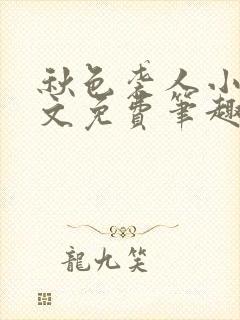 秋色老人小
文免費筆趣
龍九笑